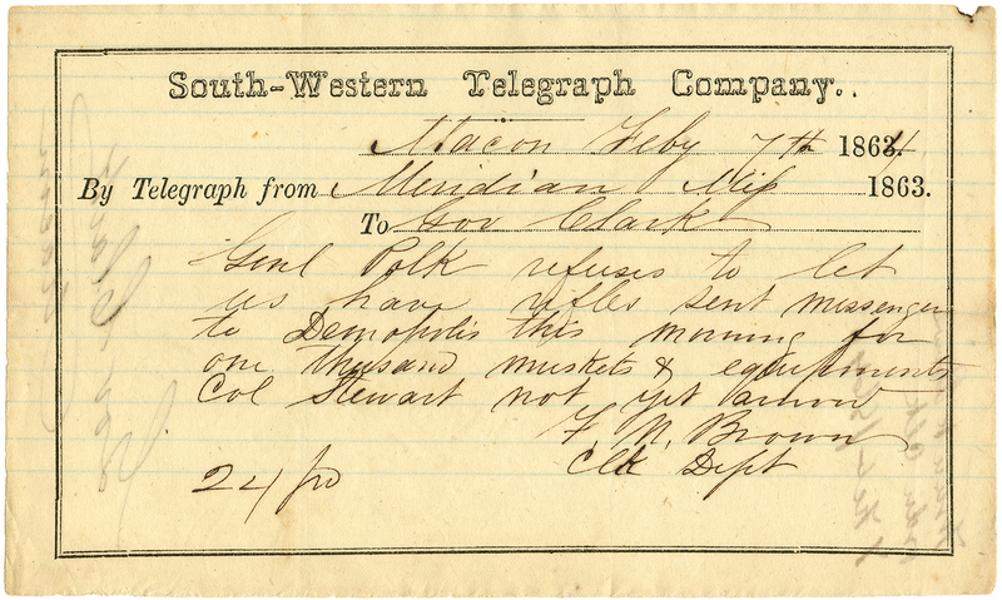 South-Western Telegraph Company..
Macon Feby 7th 1863.4
By Telegraph from Meridian Miſs 1863.
To Gov Clark
Genl Polk refuses to let
us have rifles sent messenger
to Demopolis this morning for
one thousand muskets & equipments
Col Stewart not yet arrived
F. N. Brown
Clk Dept
24/pd